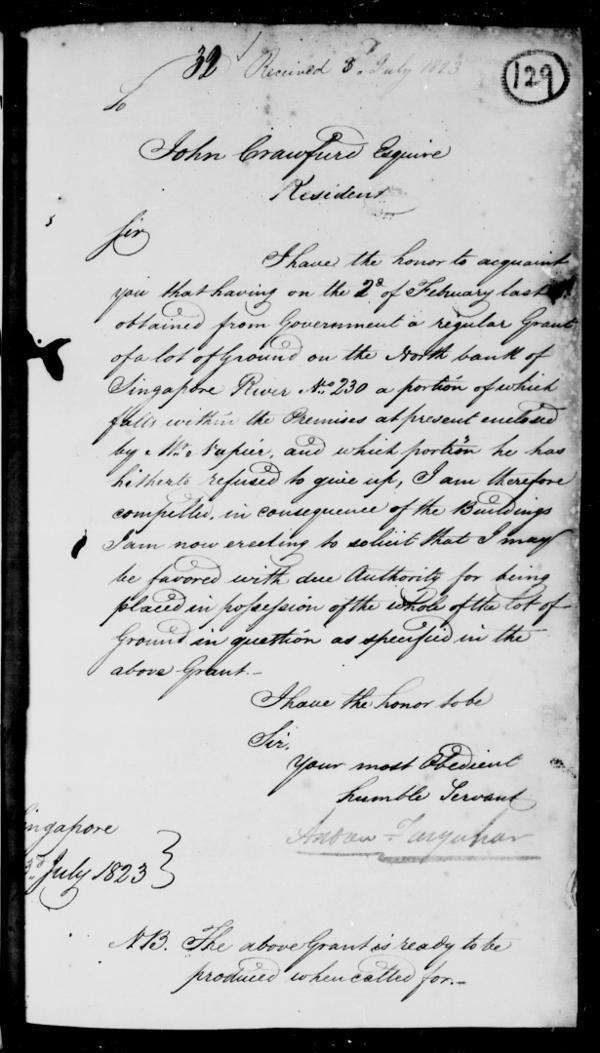 32 Received 3d July 1823
129
To
John Crawfurd Esquire
Resident
Sir
I have the honor to acquaint
you that having on the 2d of February last
obtained from Government a regular Grant
of a lot of Ground on the North bank of
Singapore River No. 230 a portion of which
falls within the Premises at present enclosed
by Mr. Napier, and which portion he has
hitherto refused to give up, I am therefore
compelled, in consequence of the Buildings
I am now erecting to solicit that I may
be favored with due Authority for being
placed in possession of the whole of the Lot of
Ground in question as specified in the
above Grant.-
I have the honor to be
Sir,
Your most Obedient
humble Servant
Andrew Farquhar
Singapore
3d July 1823
NB. The above Grant is ready to be
produced when called for.-